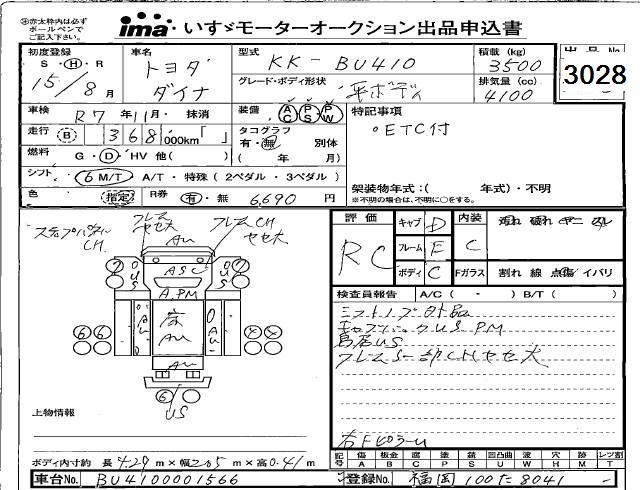 ※赤太枠内は必ず
ボールペンで
ご記入下さい。
ima いすゞモーターオークション出品申込書
初度登録 車名 型式 積載 (kg) 出品No.
S・H・R トヨタ KK-BU410 3500 3028
15/8月 ダイナ グレード・ボディ形状 平ボディ 排気量 (cc) 4100
車検 R7年11月・抹消 装備 AC PS PW 特記事項
走行 B 368,000km「 」 タコグラフ 有・無 別体 ○ETC付
燃料 G・D・HV 他( ) ( 年 月)
シフト 6 M/T A/T・特殊(2ペダル・3ペダル) 架装物年式:( 年式)・不明
色 指定 R券 有・無 6,690円 ※不明の場合は、不明に○をする。
評価 キャブ D 内装 汚れ 破れ
RC フレーム E C
ボディ C Fガラス 割れ 線 点傷/イバリ
フレム
ヤセ大
フレームCH
ヤセ大
CH.
AU
ASC
US
A.PM
床
AU
AU
US
検査員報告 A/C( - ) B/T( )
シフトノブ外品
キャブバックUS PM
鳥居US
フレーム一部CHヤセ大
上物情報
記号 傷A 板金B 腐C 塗P 錆S 凹凸曲U 波W 穴H 跡M レツ割T
ボディ内寸約 長4.29m×幅2.05m×高0.41m
車台No. BU4100001566 登録No. 福岡100た8041